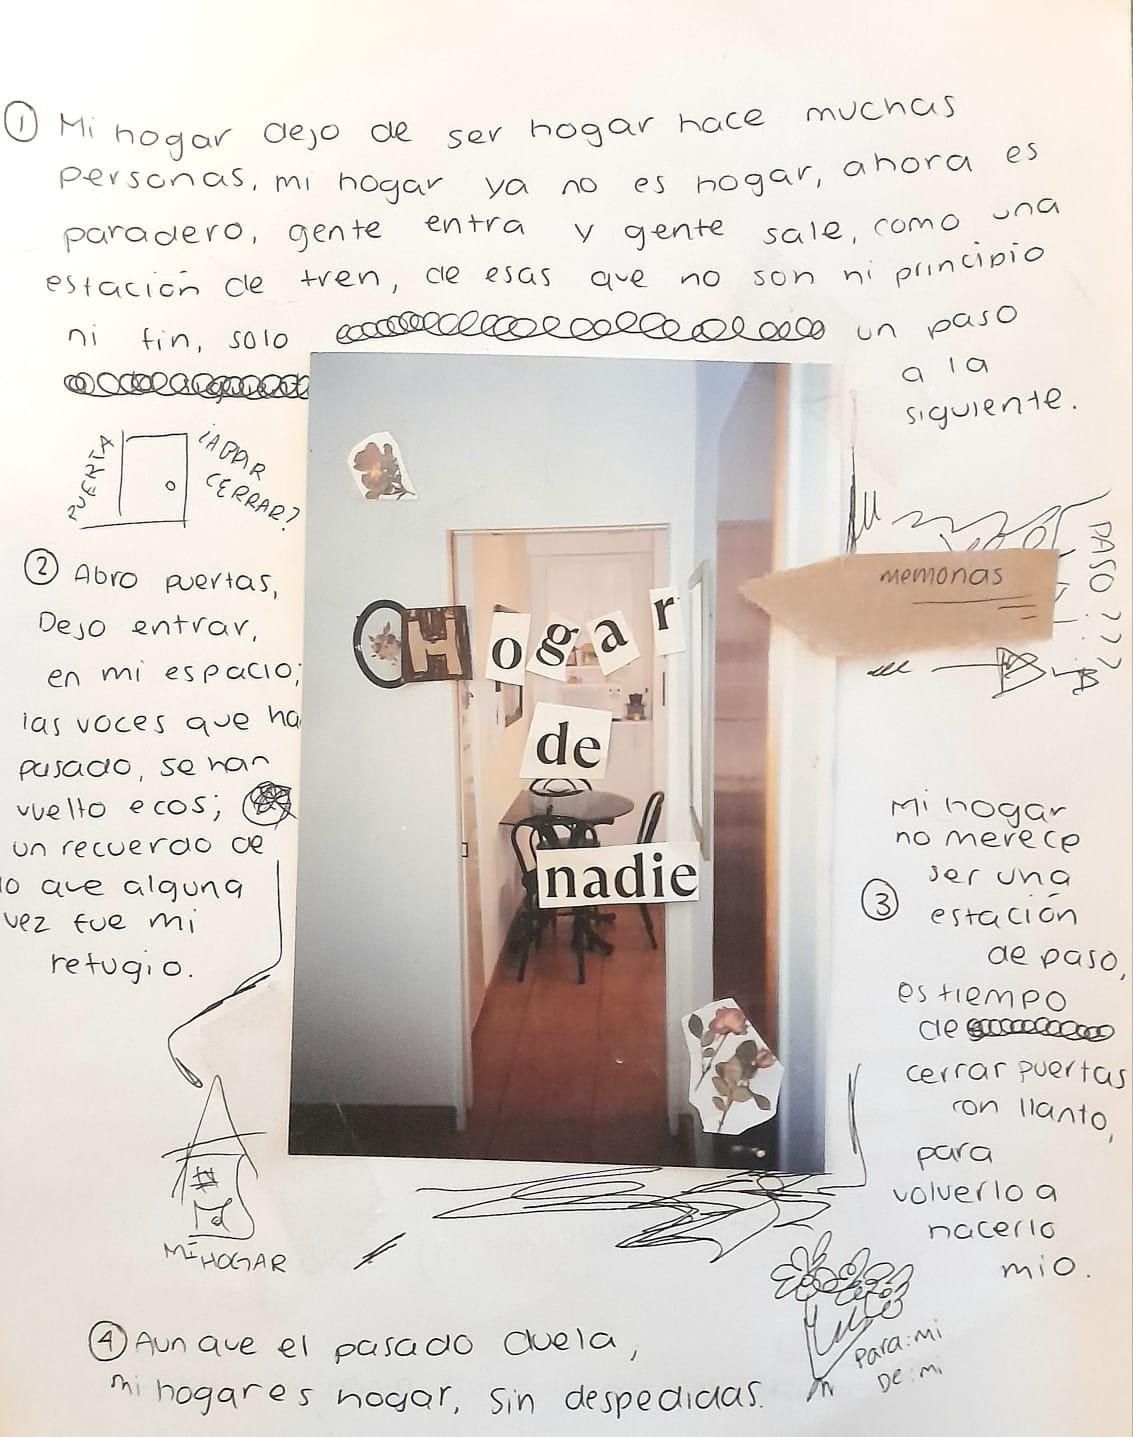 ① Mi hogar dejo de ser hogar hace muchas
personas, mi hogar ya no es hogar, ahora es
paradero, gente entra y gente sale, como una
estación de tren, de esas que no son ni principio
ni fin, solo un paso
a la
siguiente.
PUERTA
¿ABRIR
CERRAR?
② Abro puertas,
Dejo entrar,
en mi espacio;
las voces que ha
pasado, se han
vuelto ecos;
un recuerdo de
lo que alguna
vez fue mi
refugio.
MI HOGAR
Hogar
de
nadie
memorias
PASO???
Mi hogar
no merece
ser una
③ estación
de paso,
es tiempo
de
cerrar puertas
con llanto,
para
volverlo a
hacerlo
mio.
Para: mi
De: mi
④ Aunque el pasado duela,
mi hogar es hogar, sin despedidas.